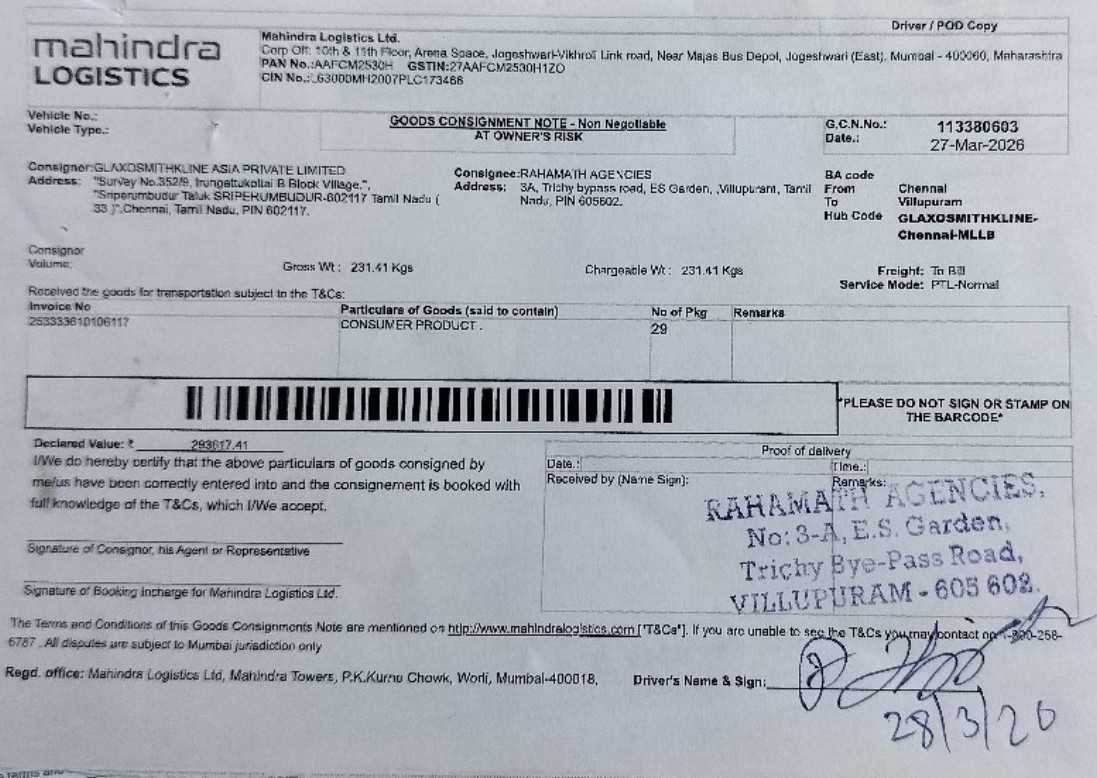 Driver / POD Copy
mahindra
LOGISTICS
Mahindra Logistics Ltd.
Corp Off: 10th & 11th Floor, Arena Space, Jogeshwari-Vikhroli Link road, Near Majas Bus Depot, Jogeshwari (East), Mumbai - 400060, Maharashtra
PAN No.:AAFCM2530H GSTIN:27AAFCM2530H1ZO
CIN No.:L63000MH2007PLC173466
Vehicle No.:
Vehicle Type.:
GOODS CONSIGNMENT NOTE - Non Negotiable
AT OWNER'S RISK
G.C.N.No.: 113380603
Date.: 27-Mar-2026
Consignor:GLAXOSMITHKLINE ASIA PRIVATE LIMITED
Address: "Survey No.352/9, Irungattukottai B Block Village,",
"Sriperumbudur Taluk SRIPERUMBUDUR-602117 Tamil Nadu (
33 )",Chennai, Tamil Nadu, PIN 602117.
Consignee:RAHAMATH AGENCIES
Address: 3A, Trichy bypass road, ES Garden, ,Villupurant, Tamil
Nadu, PIN 605602.
BA code
From Chennai
To Villupuram
Hub Code GLAXOSMITHKLINE-
Chennai-MLLB
Consignor
Volume:
Gross Wt : 231.41 Kgs
Chargeable Wt : 231.41 Kgs
Freight: To Bill
Service Mode: PTL-Normal
Received the goods for transportation subject to the T&Cs:
Invoice No Particulars of Goods (said to contain) No of Pkg Remarks
253333610106117 CONSUMER PRODUCT . 29
*PLEASE DO NOT SIGN OR STAMP ON
THE BARCODE*
Declared Value: ₹ 293617.41
I/We do hereby certify that the above particulars of goods consigned by
me/us have been correctly entered into and the consignement is booked with
full knowledge of the T&Cs, which I/We accept.
Signature of Consignor, his Agent or Representative
Signature of Booking Incharge for Mahindra Logistics Ltd.
Proof of delivery
Date.: Time.:
Received by (Name Sign): Remarks:
RAHAMATH AGENCIES,
No: 3-A, E.S. Garden,
Trichy Bye-Pass Road,
VILLUPURAM - 605 602.
The Terms and Conditions of this Goods Consignments Note are mentioned on http://www.mahindralogistics.com ["T&Cs"]. If you are unable to see the T&Cs you may contact on 1-800-258-
6787 . All disputes are subject to Mumbai jurisdiction only
Regd. office: Mahindra Logistics Ltd, Mahindra Towers, P.K.Kurne Chowk, Worli, Mumbai-400018,
Driver's Name & Sign:
28/3/26